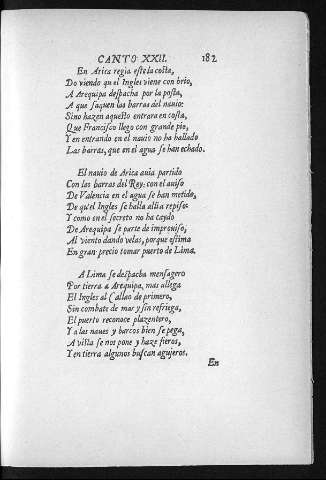 CANTO XXII. 182
En Arica regia este la costa,
Do viendo qu el Ingles viene con brio,
A Arequipa despacha por la posta,
A que saquen las barras del nauio:
Sino hazen aquesto entrara en costa,
Que Francisco llego con grande pio,
Y en entrando en el nauio no ha hallado
Las barras, que en el agua se han echado.
El nauio de Arica auia partido
Con las barras del Rey: con el auiso
De Valencia en el agua se han metido,
De qu'el Ingles se halla allia repiso:
Y como en el secreto no ha caydo
De Arequipa se parte de improuiso,
Al viento dando velas, porque estima
En gran precio tomar puerto de Lima.
A Lima se despacha mensagero
Por tierra a Arequipa, mas allega
El Ingles al Callao de primero,
Sin combate de mar y sin refriega,
El puerto reconoce plazentero,
Y a las naues y barcos bien se pega,
A villa se nos pone y haze fieros,
Y en tierra algunos buscan agujeros.
En